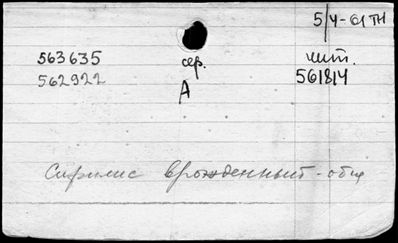 5/4-61 ТН
563635 сер. чит.
562922 А 561814
Сифилис врожденный - общ